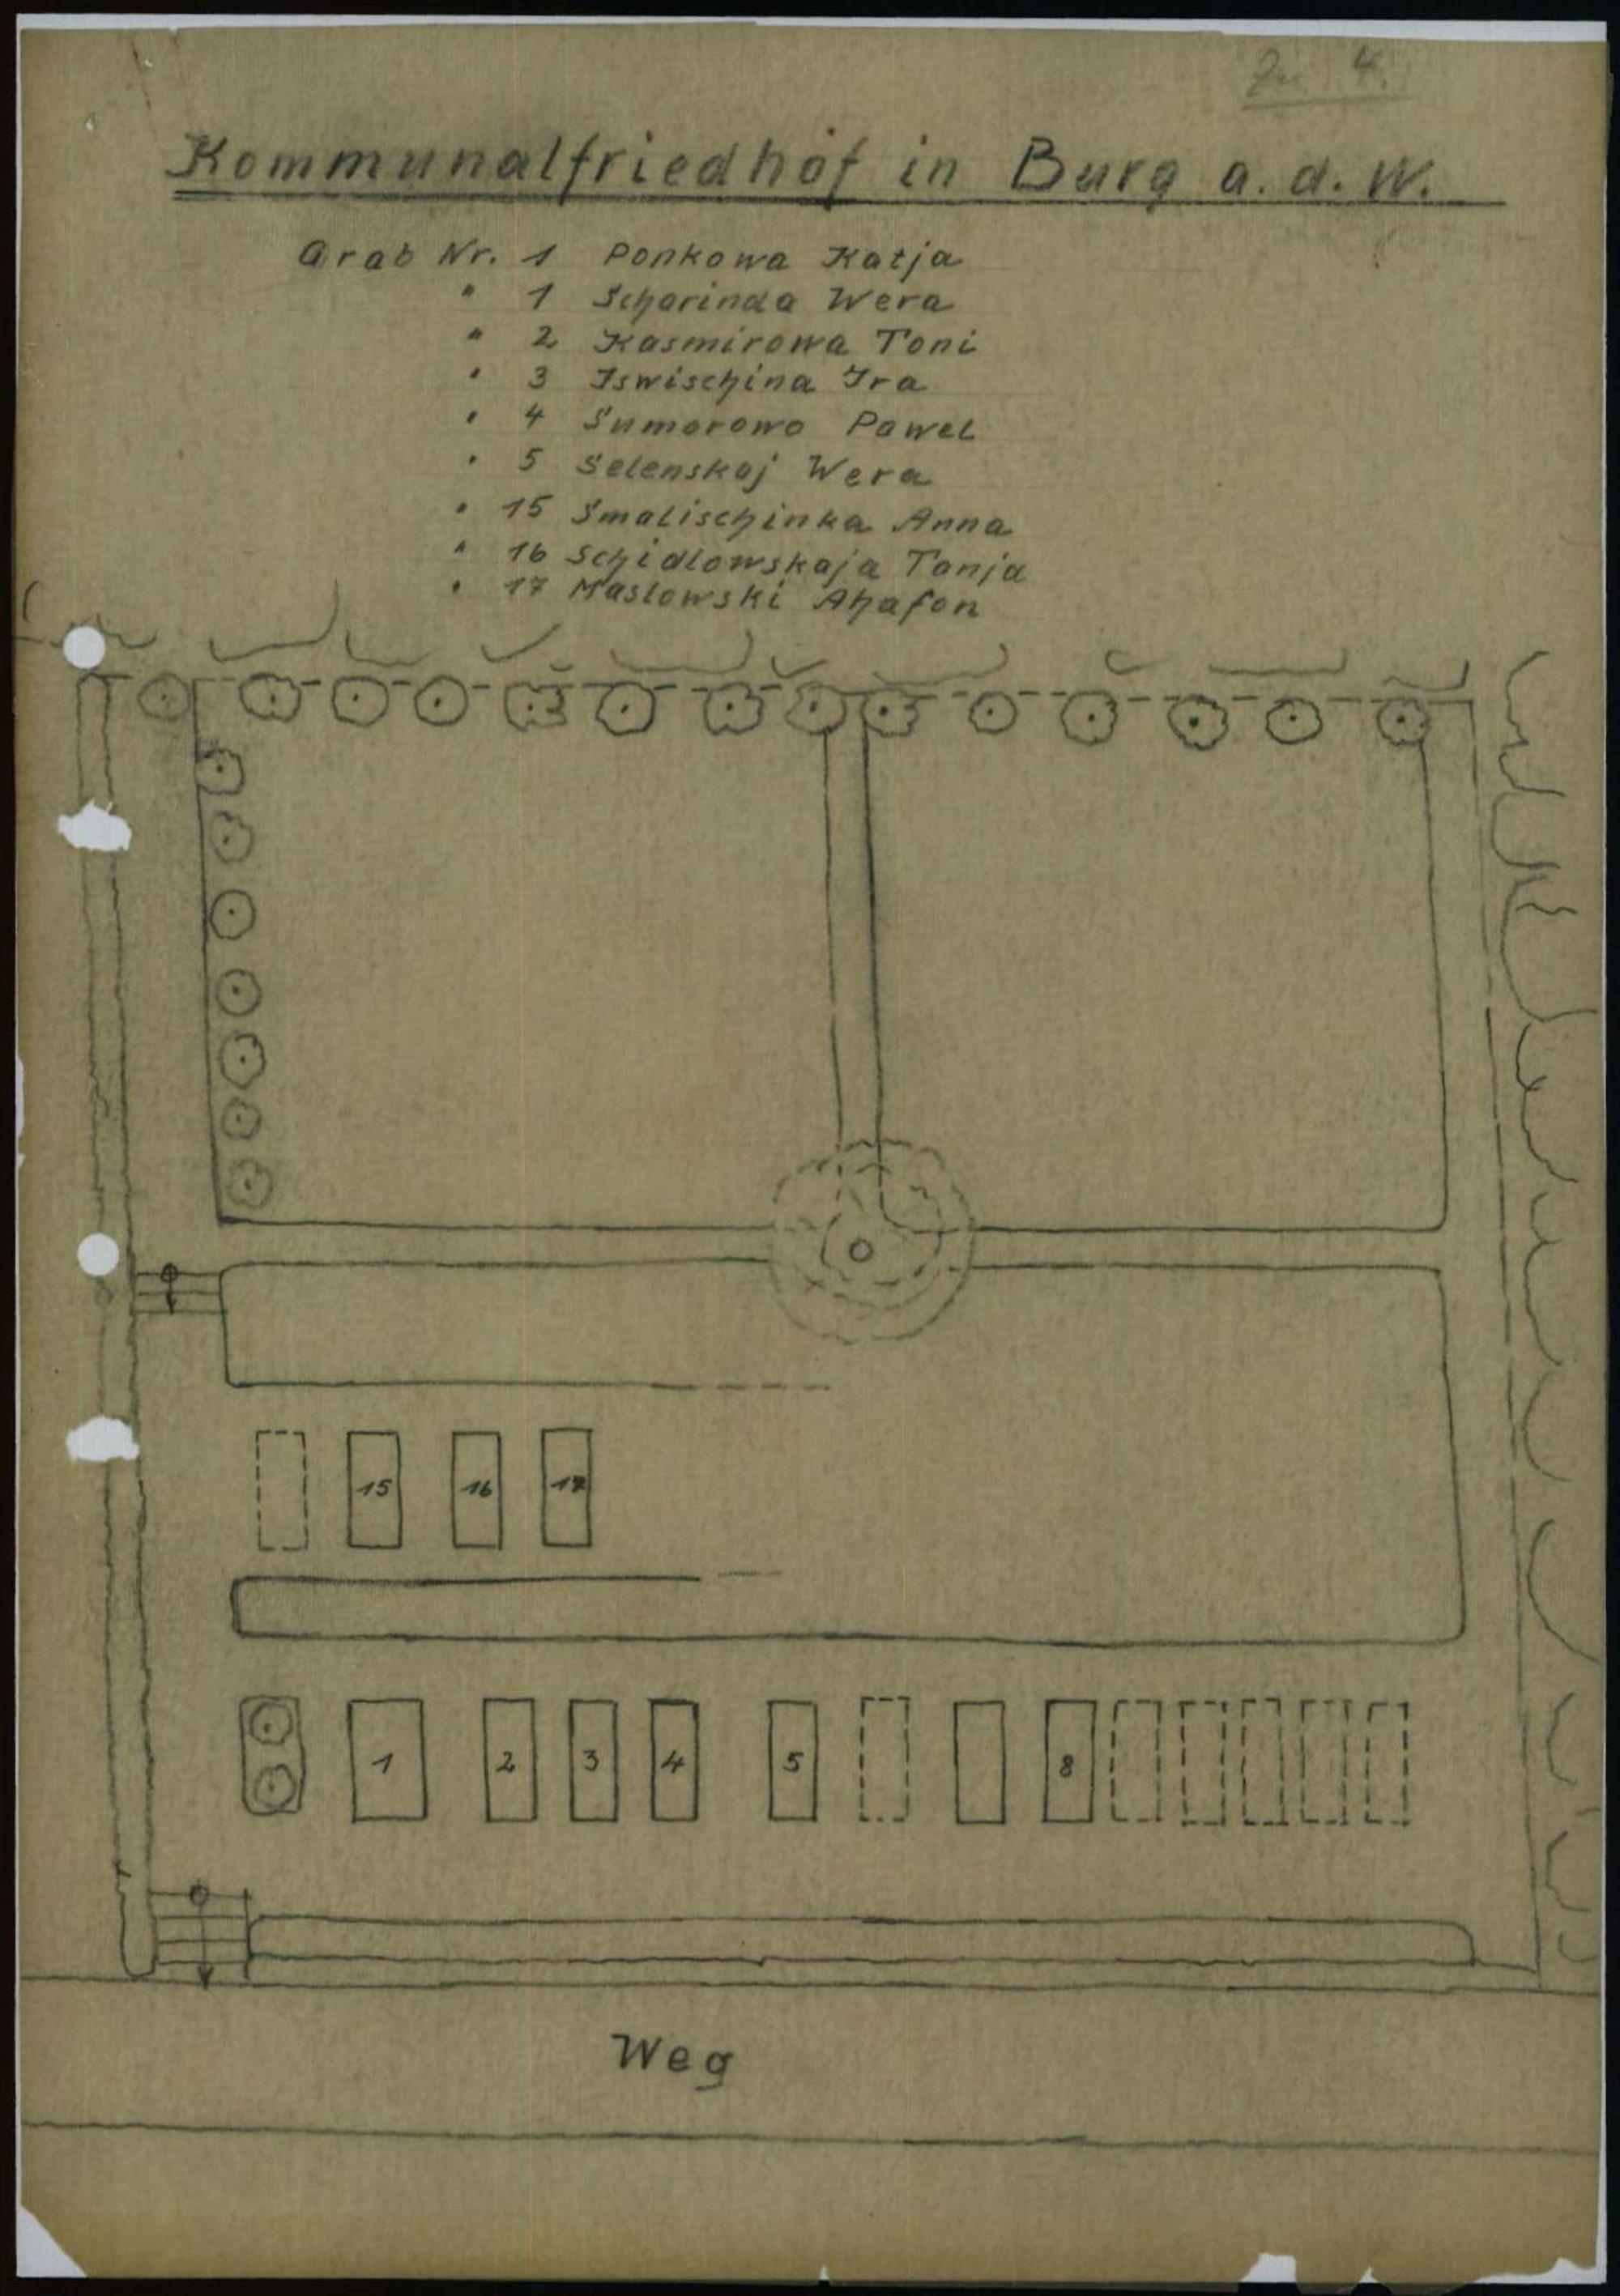 Zu 4.
Kommunalfriedhof in Burg a.d.W.
Grab Nr. 1 Ponkowa Katja
" 1 Scharinda Wera
" 2 Kasmirowa Toni
" 3 Iswischina Ira
" 4 Sumorowo Pawel
" 5 Selenskaj Wera
" 15 Smalischinka Anna
" 16 Schidlowskaja Tanja
" 17 Maslowski Ahafon
15 16 17
1 2 3 4 5 8
Weg